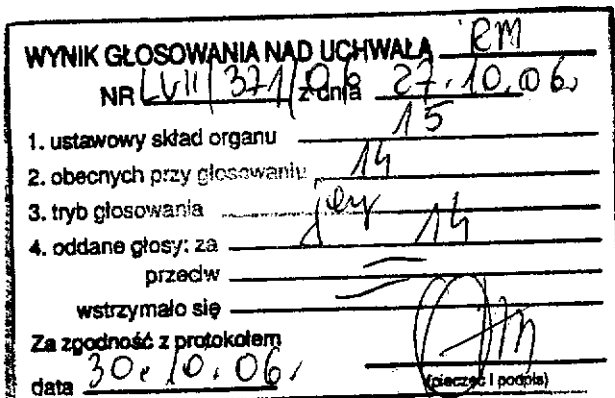 WYNIK GŁOSOWANIA NAD UCHWAŁĄ RM
NR LVII/371/06 z dnia 27.10.06.
1. ustawowy skład organu 15
2. obecnych przy głosowaniu 14
3. tryb głosowania
4. oddane głosy: za 14
przeciw =
wstrzymało się =
Za zgodność z protokołem
data 30.10.06.
(pieczęć i podpis)